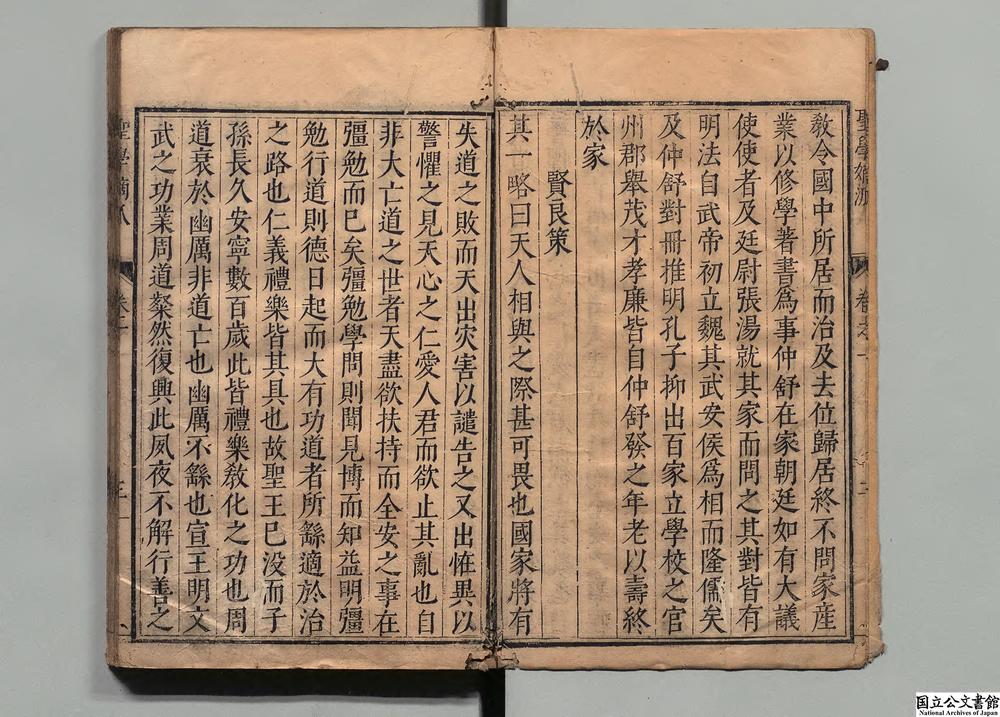 敎令國中所居而治及去位歸居終不問家産
業以修學著書爲事仲舒在家朝廷如有大議
使使者及廷尉張湯就其家而問之其對皆有
明法自武帝初立魏其武安侯爲相而隆儒矣
及仲舒對冊推明孔子抑出百家立學校之官
州郡舉茂才孝廉皆自仲舒發之年老以壽終
於家
賢良策
其一略曰天人相與之際甚可畏也國家將有
失道之敗而天出灾害以譴告之又出恠異以
警懼之見天心之仁愛人君而欲止其亂也自
非大亡道之世者天盡欲扶持而全安之事在
彊勉而已矣彊勉學問則聞見博而知益明彊
勉行道則德日起而大有功道者所繇適於治
之路也仁義禮樂皆其具也故聖王已没而子
孫長久安寧數百歲此皆禮樂敎化之功也周
道衰於幽厲非道亡也幽厲不繇也宣王明文
武之功業周道粲然復興此夙夜不解行善之
国立公文書館
National Archives of Japan